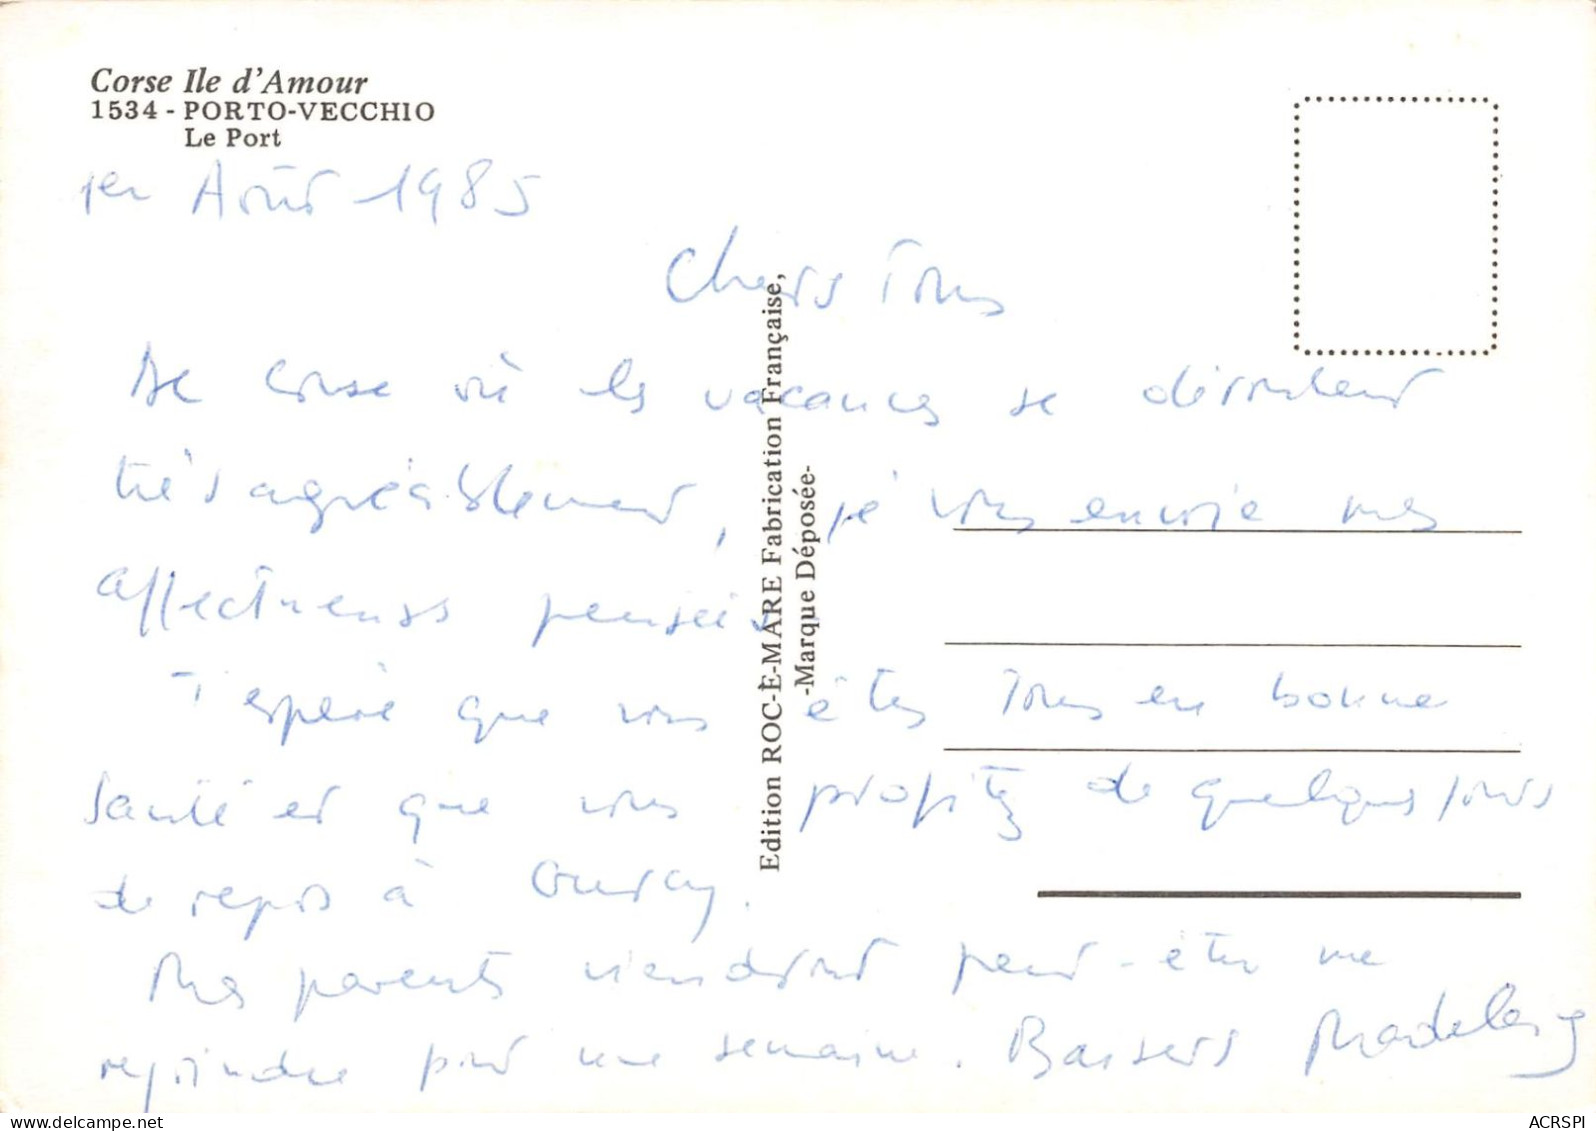 Corse Ile d'Amour
1534 - PORTO-VECCHIO
Le Port
1er Août 1985
Chers Tous
De Corse où les vacances se déroulent
très agréablement, je vous envoie mes
affectueuses pensées.
J'espère que vous êtes tous en bonne
santé et que vous profitez de quelques jours
de repos à
Mes parents viendront peut-être me
rejoindre pour une semaine. Baisers
Edition ROC-E-MARE Fabrication Française,
-Marque Déposée-
www.delcampe.net
ACRSPI